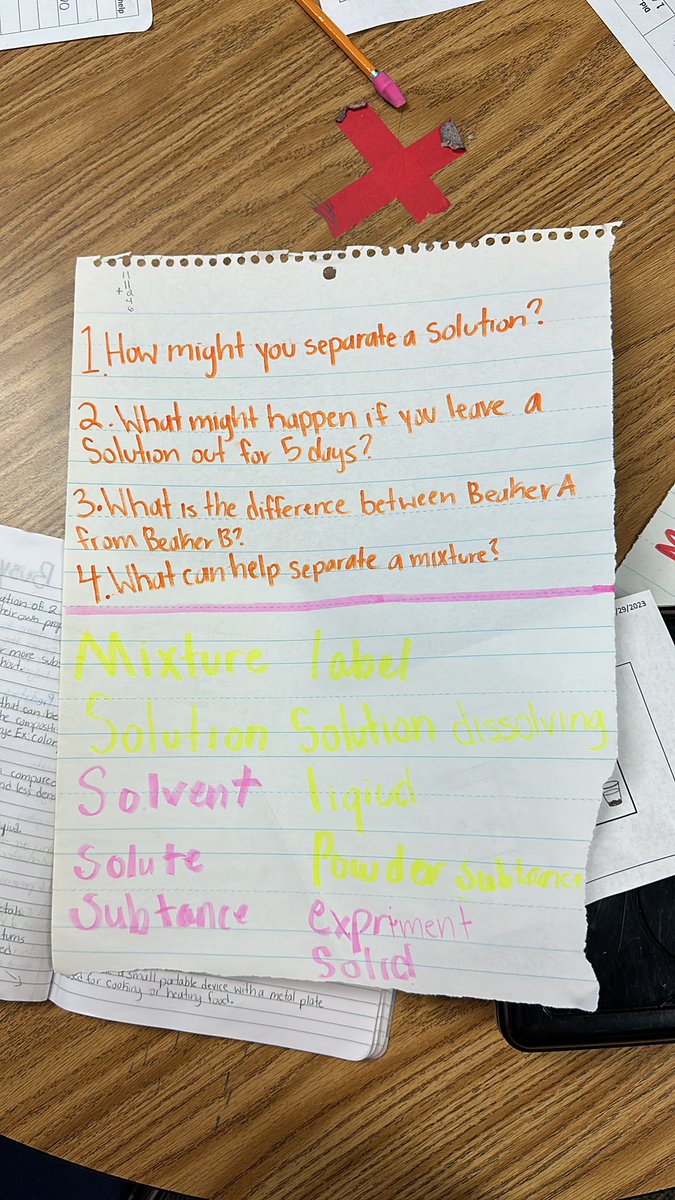 help
00
Did
1
11
11
+ 2
4
6
1. How might you separate a solution?
2. What might happen if you leave a
Solution out for 5 days?
3. What is the difference between Beaker A
from Beaker B?
4. What can help separate a mixture?
Mixture label
Solution Solution dissolving
Solvent liqiud
Solute Powder Subtance
Subtance expriment
Solid
/29/2023
ation of 2
their own prop
r more sub
that can be
ge Ex: color
compared
nd less den
iqiud.
etals.
turns
ed
a small portable device with a metal plate
used for cooking or heating food.